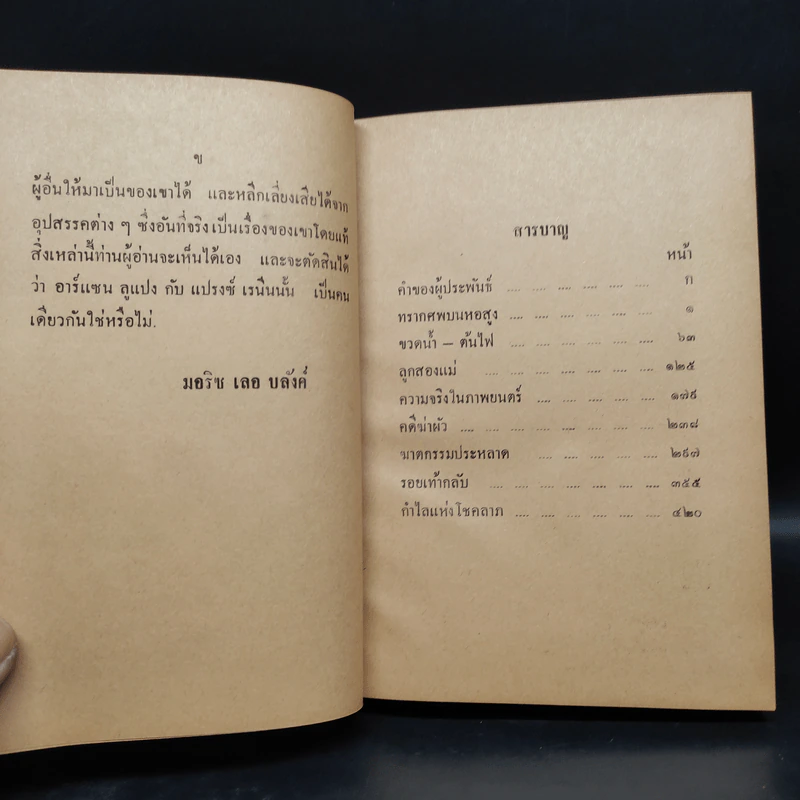 ข
ผู้อื่นให้มาเป็นของเขาได้ และหลีกเลี่ยงเสียได้จาก
อุปสรรคต่าง ๆ ซึ่งอันที่จริงเป็นเรื่องของเขาโดยแท้
สิ่งเหล่านี้ท่านผู้อ่านจะเห็นได้เอง และจะตัดสินได้
ว่า อาร์แซน ลูแปง กับ แปรงซ์ เรนีนนั้น เป็นคน
เดียวกันใช่หรือไม่.
มอริซ เลอ บลังค์
สารบาญ
หน้า
คำของผู้ประพันธ์ .... .... .... .... .... .... ก
ทรากศพบนหอสูง .... .... .... .... .... .... ๑
ขวดน้ำ – ต้นไฟ .... .... .... .... .... .... ๖๓
ลูกสองแม่ .... .... .... .... .... .... ๑๒๕
ความจริงในภาพยนตร์ .... .... .... .... .... ๑๗๕
คดีฆ่าผัว .... .... .... .... .... .... .... ๒๓๘
ฆาตกรรมประหลาด .... .... .... .... .... ๒๙๗
รอยเท้ากลับ .... .... .... .... .... .... ๓๕๕
กำไลแห่งโชคลาภ .... .... .... .... .... .... ๔๒๐